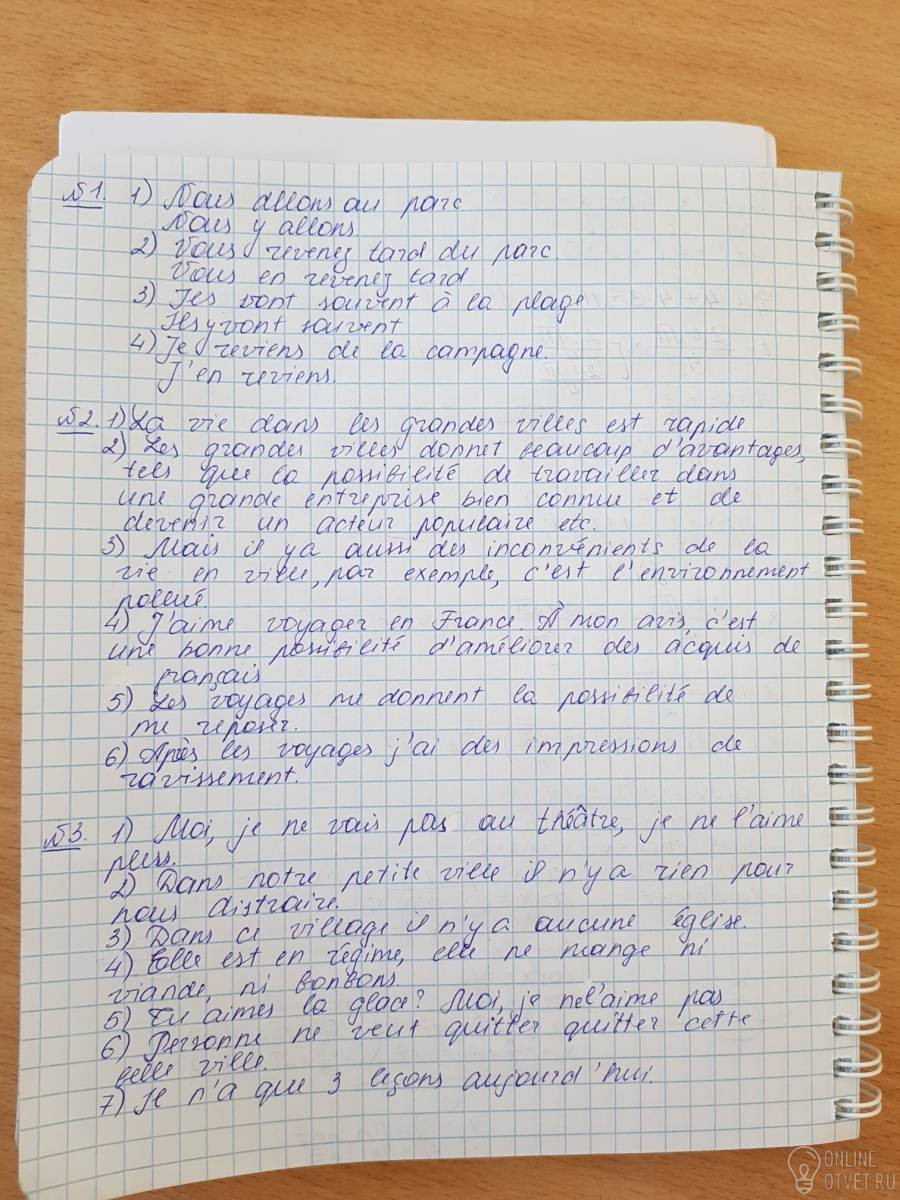 №1. 1) Nous allons au parc
Nous y allons
2) Vous revenez tard du parc.
Vous en revenez tard
3) Ils vont souvent à la plage
Ils y vont souvent
4) Je reviens de la campagne.
J'en reviens.
№2. 1) La vie dans les grandes villes est rapide
2) Les grandes villes donnet beaucoup d'avantages,
tels que la possibilité de travailler dans
une grande entreprise bien connue et de
devenir un acteur populaire etc.
3) Mais il y a aussi des inconvénients de la
vie en ville, par exemple, c'est l'environnement
pollué.
4) J'aime voyager en France. À mon avis, c'est
une bonne possibilité d'améliorer des acquis de
français
5) Les voyages me donnent la possibilité de
me reposer.
6) Après les voyages j'ai des impressions de
ravissement.
№3. 1) Moi, je ne vais pas au théâtre, je ne l'aime
plus.
2) Dans notre petite ville il n'y a rien pour
nous distraire.
3) Dans ce village il n'y a aucune église.
4) Elle est en régime, elle ne mange ni
viande, ni bonbons.
5) Tu aimes la glace? Moi, je ne l'aime pas
6) Personne ne veut quitter quitter cette
belle ville.
7) Je n'a que 3 leçons aujourd'hui.
ONLINE
OTVET.RU